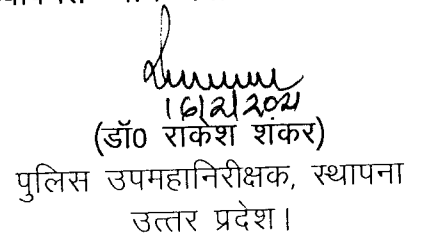 16/2/2021
(डॉ0 राकेश शंकर)
पुलिस उपमहानिरीक्षक, स्थापना
उत्तर प्रदेश।